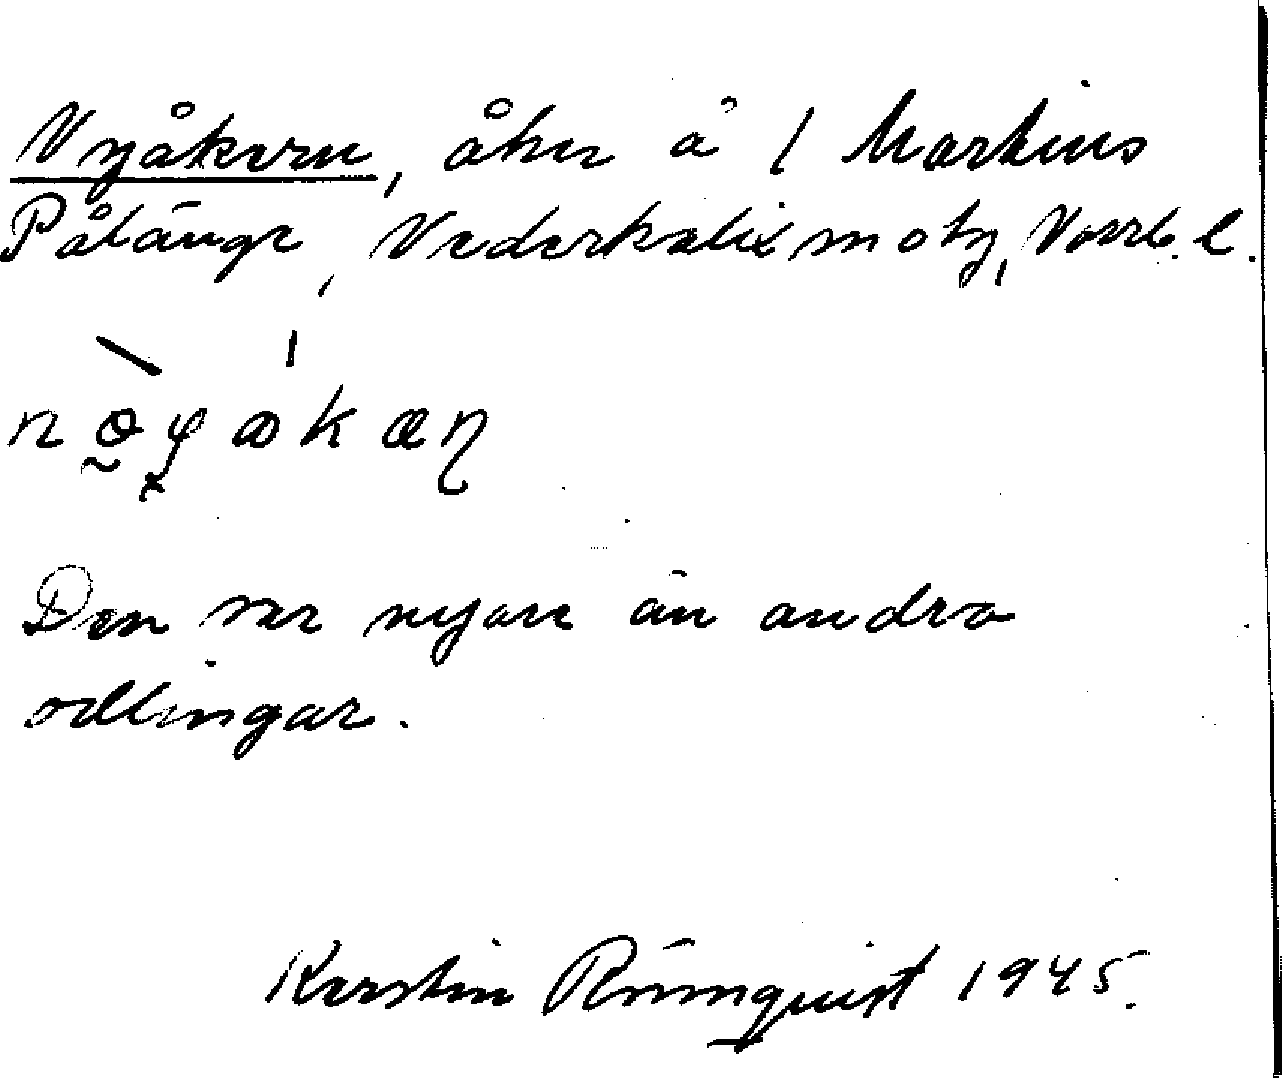 Nyåkern, åker å 1 Martins
Påläng, Nederkalix sn o tg, Norrb. l.
Den var nyare än andra
odlingar.
Kerstin Rönnquist 1945.